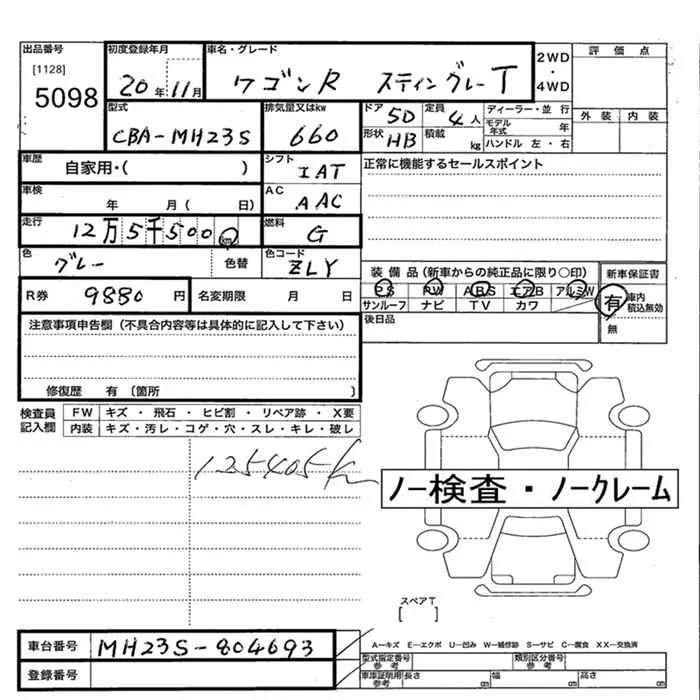 出品番号 初度登録年月 車名・グレード 2WD・4WD 評価点
[1128]
5098 20年11月 ワゴンR スティングレーT
型式 排気量又はkw ドア 5D 定員 4人 ディーラー・並行 外装 内装
CBA-MH23S 660 形状 HB 積載 kg モデル年式 年
ハンドル 左・右
車歴 自家用・( ) シフト IAT 正常に機能するセールスポイント
車検 年 月( 日) AC AAC
走行 12万5千500km 燃料 G
色 グレー 色替 色コード ZLY
装備品(新車からの純正品に限り○印) 新車保証書
R券 9880円 名変期限 月 日
PS PW ABS エアB アルミW 有 車内積込無効
サンルーフ ナビ TV カワ 無
後日品
注意事項申告欄(不具合内容等は具体的に記入して下さい)
修復歴 有(箇所 )
検査員記入欄 FW キズ・飛石・ヒビ割・リペア跡・X要
内装 キズ・汚レ・コゲ・穴・スレ・キレ・破レ
125405km
ノー検査・ノークレーム
スペアT
[ ]
車台番号 MH23S-804693
登録番号
A-キズ E-エクボ U-凹み W-補修跡 S-サビ C-腐食 XX-交換済
型式指定番号 参考 類別区分番号 参考
車庫証明用 参考 長さ cm 幅 cm 高さ cm